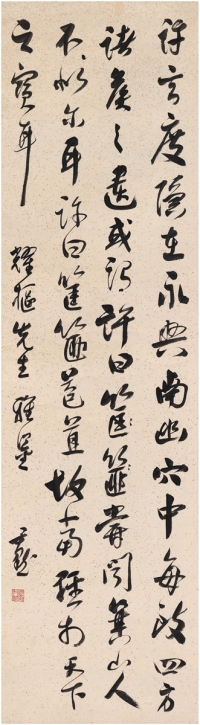 許玄度隱在永興南幽穴中每致四方
諸侯之遺或謂許曰筐篚嘗聞箕山人
不似尔耳許曰筐篚苞苴故當輕於天下
之寶耳
耀樞先生雅鑒